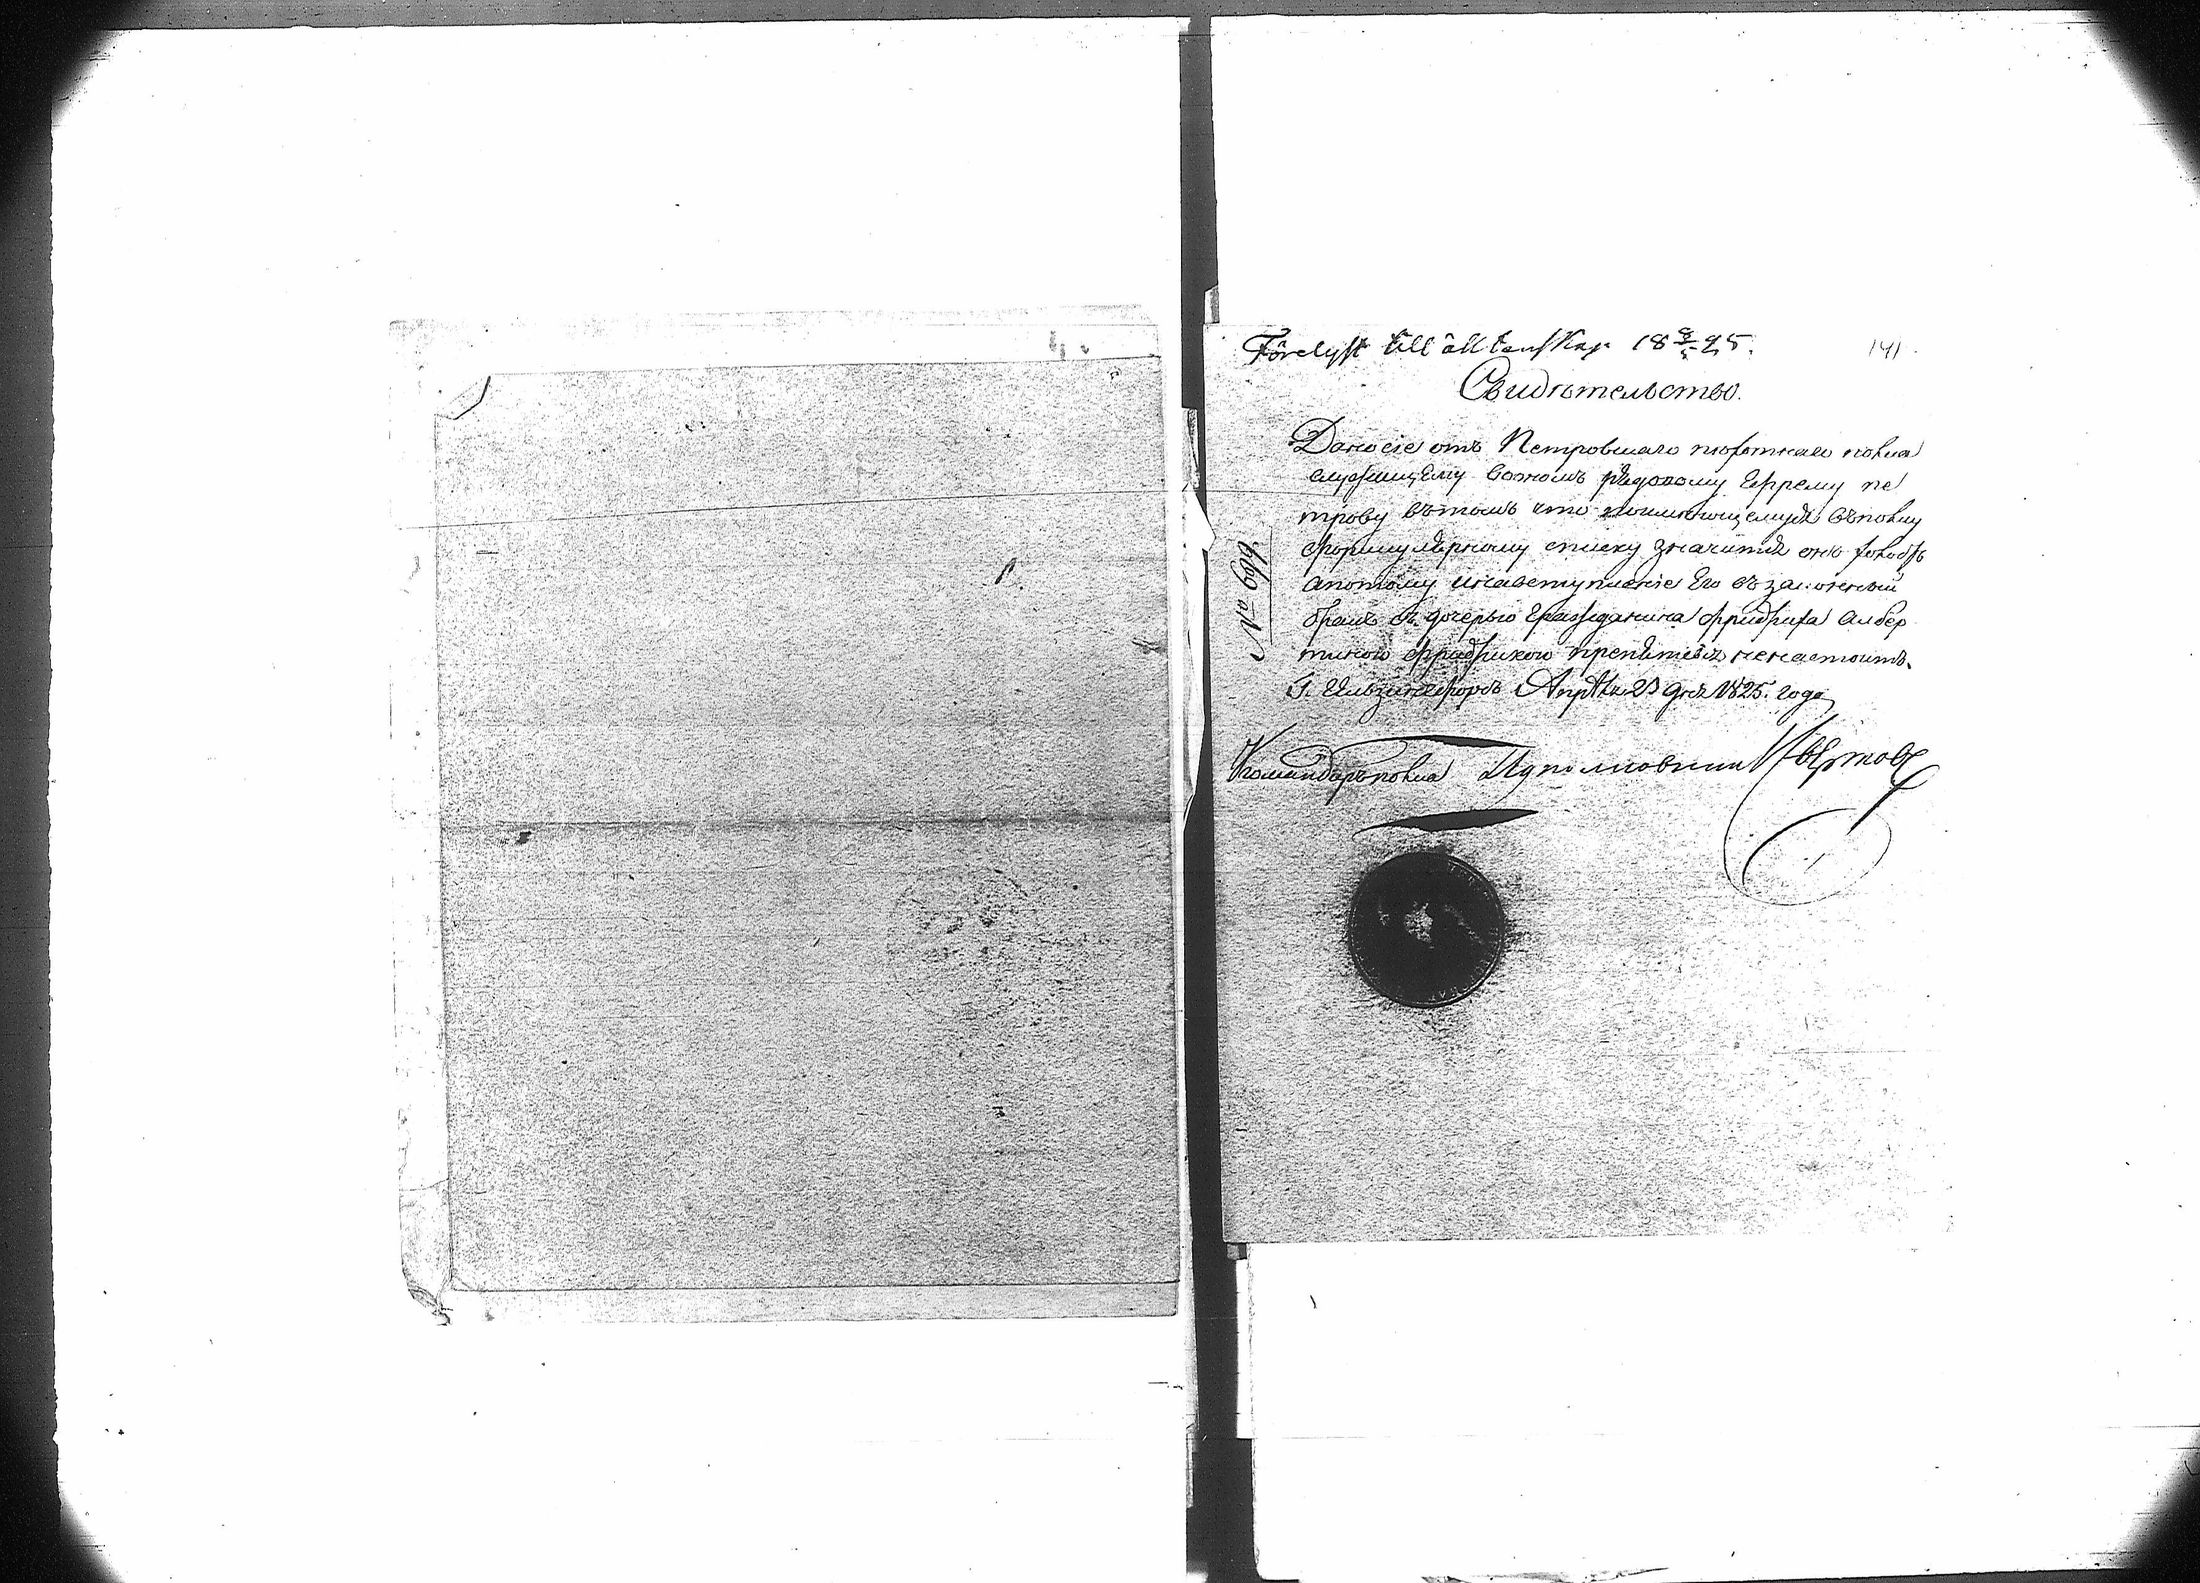 Förelyst till äktenskap 18 8/5 25.
141
Свидѣтельство.
Дано сіе отъ Петровскаго пехотнаго полка
служищему вономъ редовому Ефрему Пе
трову втомъ что поимеющемуся вполку
формулярному списку значится онъ холостъ
апотому и навступленіе Его въ законный
бракъ съ дочерью гражданина Фридриха Албер
тиною Фридрикою препятствія ненастоитъ.
Г. Гельзингфорсъ Апрѣля 23 дня 1825. года
№ 699.
Командиръ полка Подполковник